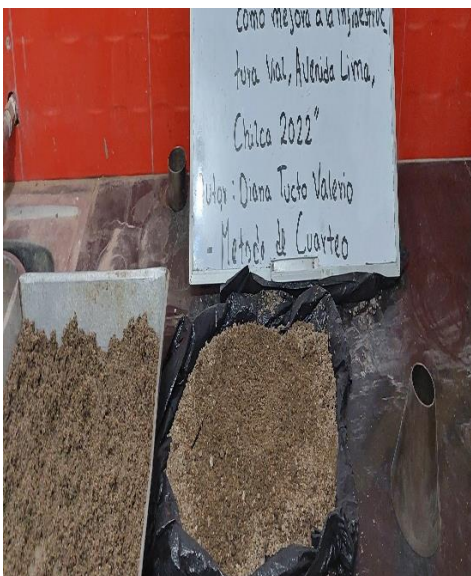 como mejora a la infraestruc
tura Vial, Avenida Lima,
Chilca 2022"
utor: Diana Tucto Valerio
- Metodo de Cuarteo